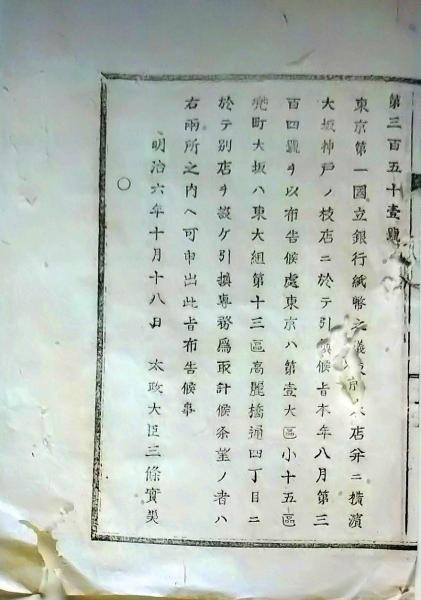 第三百五十壹號
東京第一國立銀行紙幣之儀東京本店并ニ横濱
大坂神戸ノ枝店ニ於テ引換候旨本年八月第三
百四號ヲ以布告候處東京ハ第壹大區小十五區
兜町大坂ハ東大組第十三區高麗橋通四丁目ニ
於テ別店ヲ設ケ引換專務爲取計候条望ノ者ハ
右兩所之内ヘ可申出此旨布告候事
明治六年十月十八日 太政大臣三條實美
○